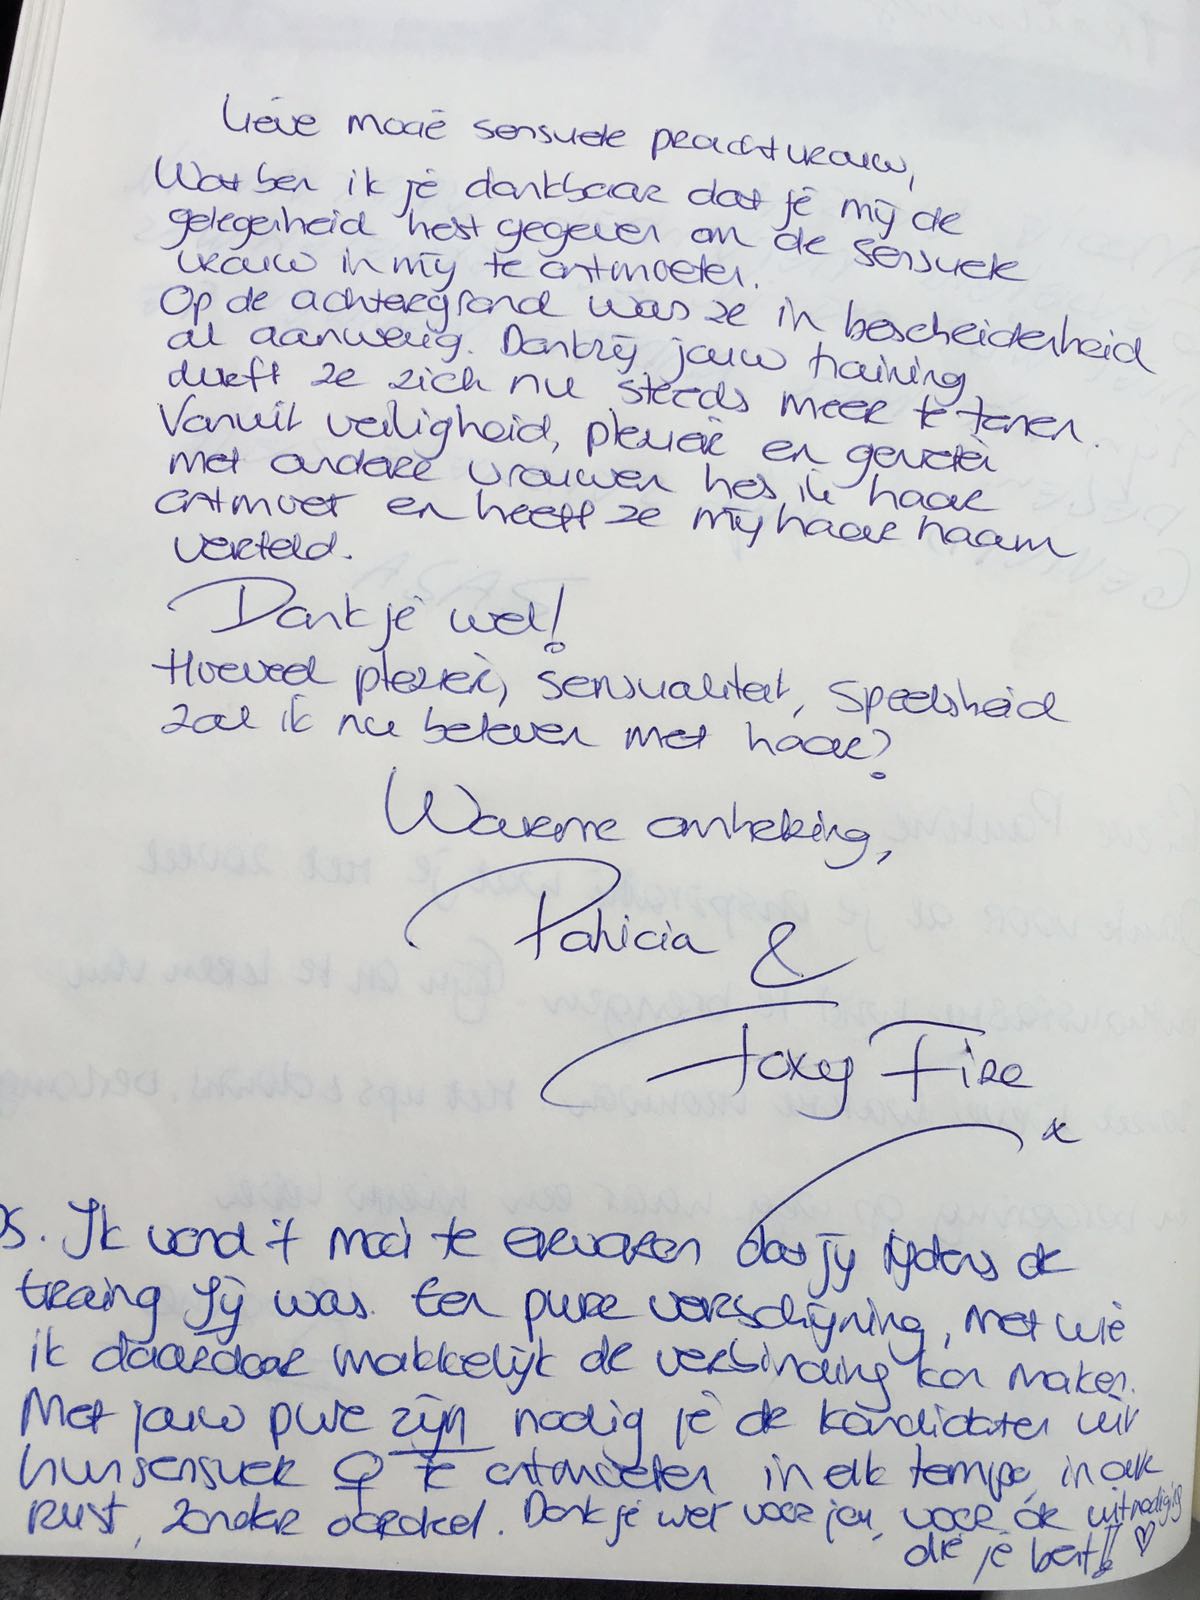 Lieve mooie sensuele prachtvrouw,
Wat ben ik je dankbaar dat je mij de
gelegenheid hebt gegeven om de sensuele
vrouw in mij te ontmoeten.
Op de achtergrond was ze in bescheidenheid
al aanwezig. Dankzij jouw training
durft ze zich nu steeds meer te tonen.
Vanuit veiligheid, plezier en genieten
met andere vrouwen heb ik haar
ontmoet en heeft ze mij haar naam
verteld.
Dank je wel!
Hoeveel plezier, sensualiteit, speelsheid
zal ik nu beleven met haar?
Warme omhelzing,
Patricia &
Foxy Fire
x
PS. Ik vond 't mooi te ervaren dat jij tijdens de
traing Jij was. Een pure verschijning, met wie
ik daardoor makkelijk de verbinding kon maken.
Met jouw pure zijn nodig je de kandidaten uit
hun sensuele ♀ te ontmoeten in elk tempo, in alle
rust, zonder oordeel. Dank je wel voor jou, voor de uitnodiging
die je bent!! ♡